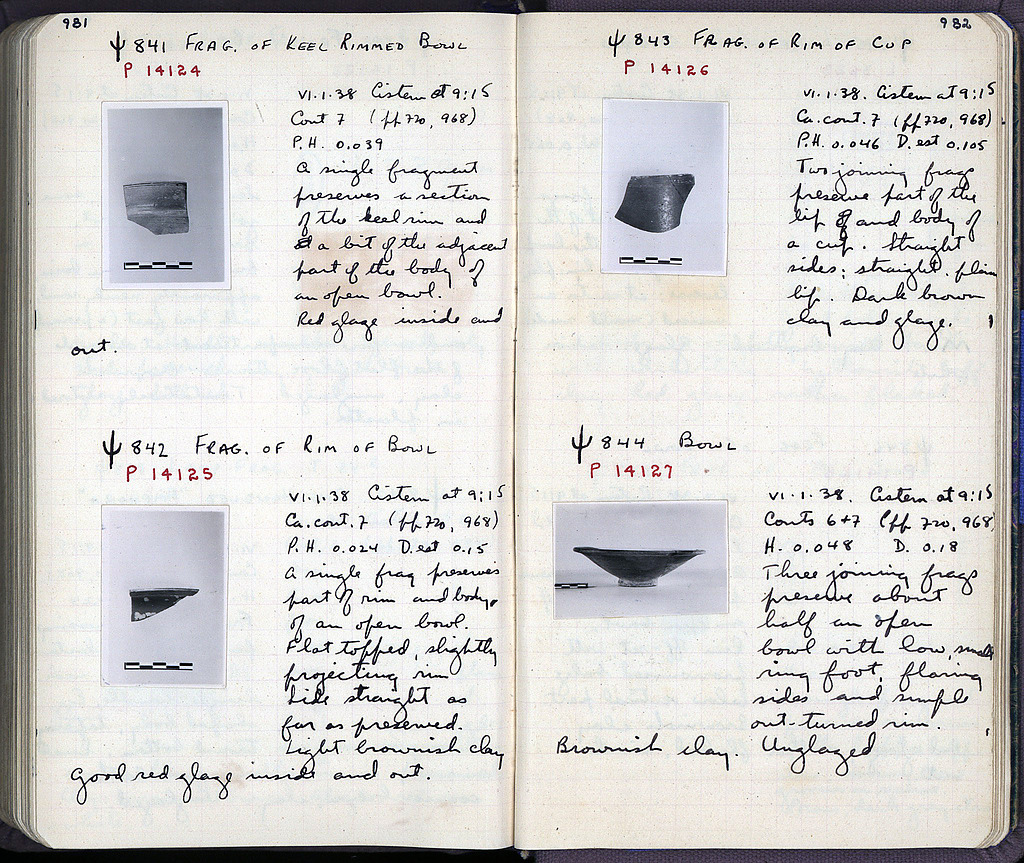 931
Ψ 841 FRAG. OF KEEL RIMMED BOWL
P 14124
VI.1.38 Cistern at 9:15
Cont 7 (ff 720, 968)
P.H. 0.039
A single fragment
preserves a section
of the keel rim and
a bit of the adjacent
part of the body of
an open bowl.
Red glaze inside and
out.
Ψ 842 FRAG. OF RIM OF BOWL
P 14125
VI.1.38 Cistern at 9:15
Ca. cont. 7 (ff 720, 968)
P.H. 0.024 D. est 0.15
A single frag preserves
part of rim and body
of an open bowl.
Flat topped, slightly
projecting rim
Side straight as
far as preserved.
Light brownish clay
Good red glaze inside and out.
932
Ψ 843 FRAG. OF RIM OF CUP
P 14126
VI.1.38. Cistern at 9:15
Ca. cont. 7 (ff 720, 968)
P.H. 0.046 D. est 0.105
Two joining frags
preserve part of the
lip and body of
a cup. Straight
sides; straight. plain
lip. Dark brown
clay and glaze.
Ψ 844 BOWL
P 14127
VI.1.38. Cistern at 9:15
Conts 6+7 (ff 720, 968)
H. 0.048 D. 0.18
Three joining frags
preserve about
half an open
bowl with low, small
ring foot, flaring
sides and simple
out-turned rim.
Brownish clay. Unglazed